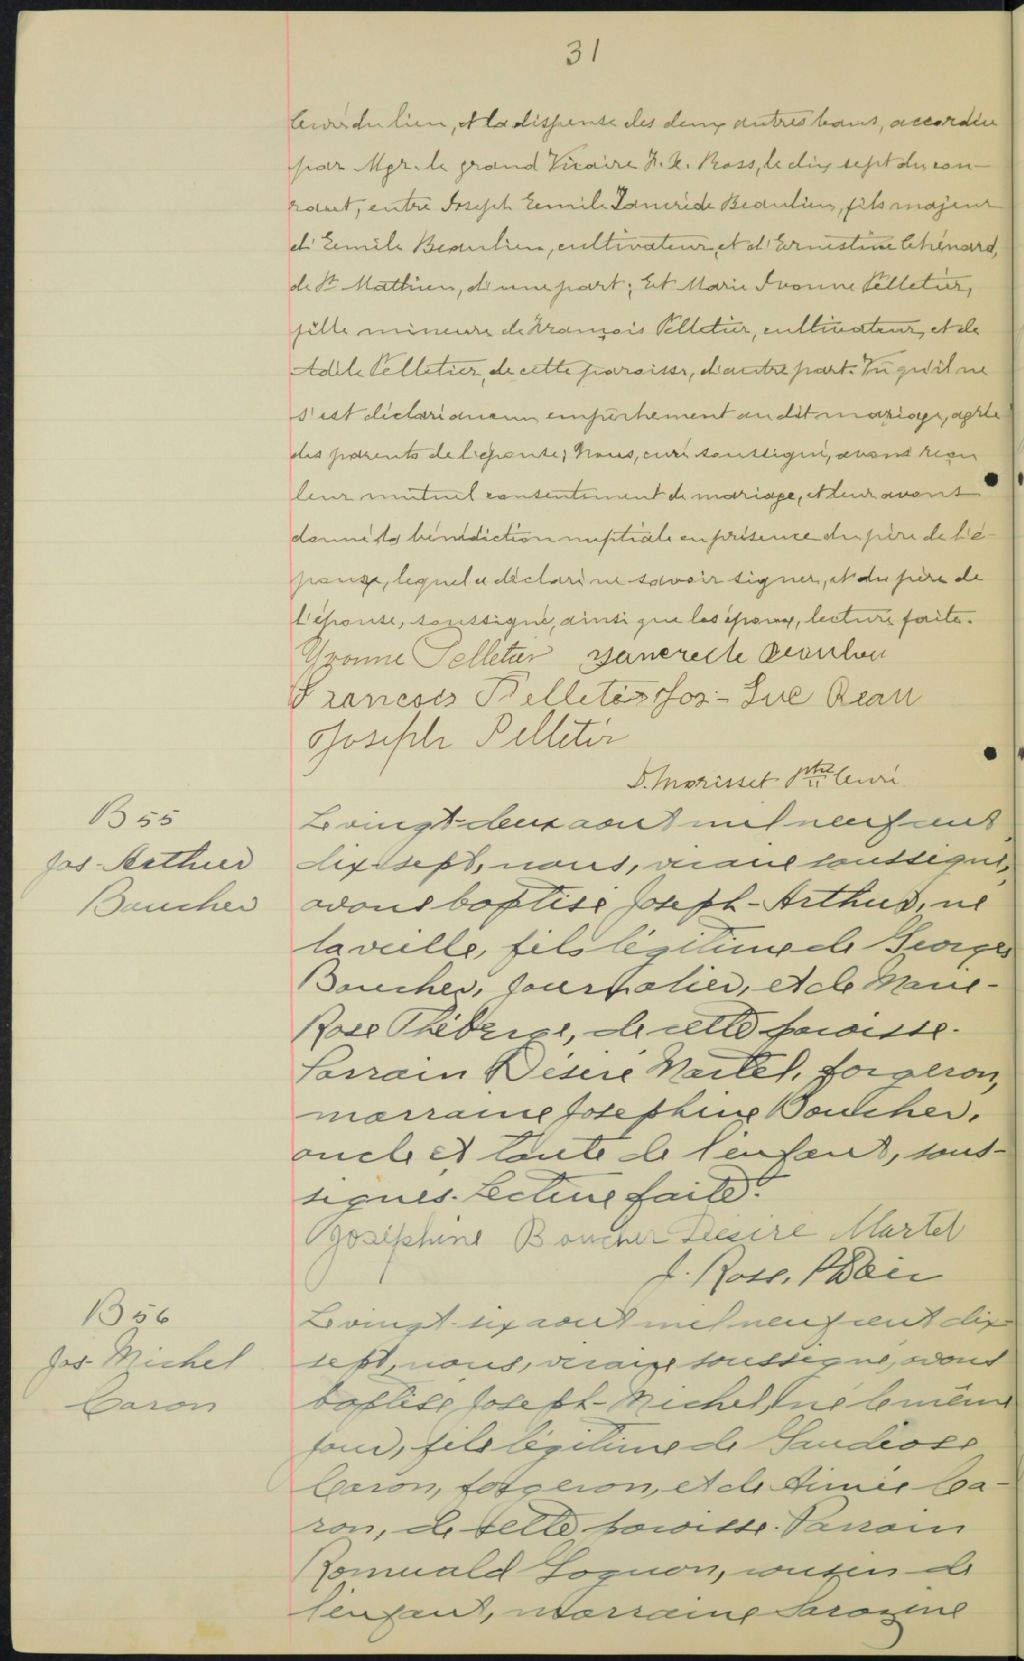 31
curé du lieu, et la dispense des deux autres bans, accordée
par Mgr. le grand Vicaire F. X. Ross, le dix sept du cou-
rant, entre Joseph Emile Tancrède Beaulieu, fils majeur
d'Emile Beaulieu, cultivateur, et d'Ernestine Chénard,
de St Mathieu, d'une part; Et Marie Ivonne Pelletier,
fille mineure de François Pelletier, cultivateur, et de
Adèle Pelletier, de cette paroisse, d'autre part. Vu qu'il ne
s'est déclaré aucun empêchement au dit mariage, agréé
des parents de l'épouse; Nous, curé soussigné, avons reçu
leur mutuel consentement de mariage, et leur avons
donné la bénédiction nuptiale en présence du père de l'é-
poux, lequel a déclaré ne savoir signer, et du père de
l'épouse, soussigné, ainsi que les époux, lecture faite.
Yvonne Pelletier Tancrede Beaulieu
Francois Pelletier Jos-Luc Beau
Joseph Pelletier
D. Morisset ptre curé
B 55
Jos-Arthur
Boucher
Le vingt-deux aout mil neuf cent
dix-sept, nous, vicaire soussigné,
avons baptisé Joseph-Arthur, né
la veille, fils légitime de Georges
Boucher, journalier, et de Marie-
Rose Théberge, de cette paroisse.
Parrain Désiré Martel, forgeron,
marraine Josephine Boucher,
oncle et tante de l'enfant, sous-
signés. Lecture faite.
Joséphine Boucher Desire Martel
J. Ross, Ptre Vic
B 56
Jos-Michel
Caron
Le vingt-six aout mil neuf cent dix-
sept, nous, vicaire soussigné, avons
baptisé Joseph-Michel, né le même
jour, fils légitime de Gaudiose
Caron, forgeron, et de Aimée Ca-
ron, de cette paroisse. Parrain
Romuald Gagnon, cousin de
l'enfant, marraine